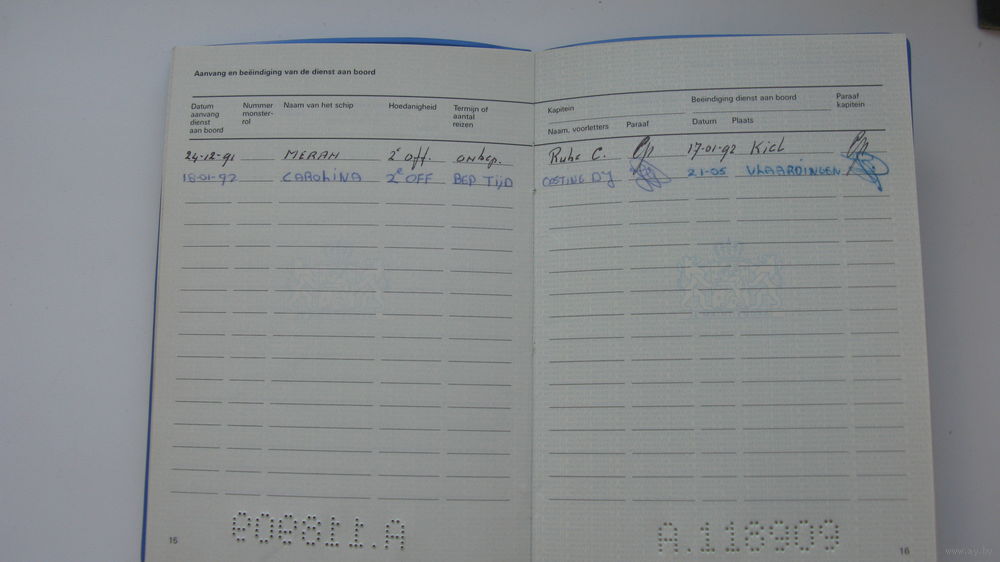 Aanvang en beëindiging van de dienst aan boord
Datum aanvang dienst aan boord
Nummer monster-rol
Naam van het schip
Hoedanigheid
Termijn of aantal reizen
24-12-91 MERAH 2e off. onbep.
18-01-92 CAROLINA 2e OFF BEP TijD
15
A.118909
Kapitein
Naam, voorletters
Paraaf
Beëindiging dienst aan boord
Datum
Plaats
Paraaf kapitein
C. 17-01-92 Kiel
21-05 VLAARDINGEN
A.118909
16
www.ay.by